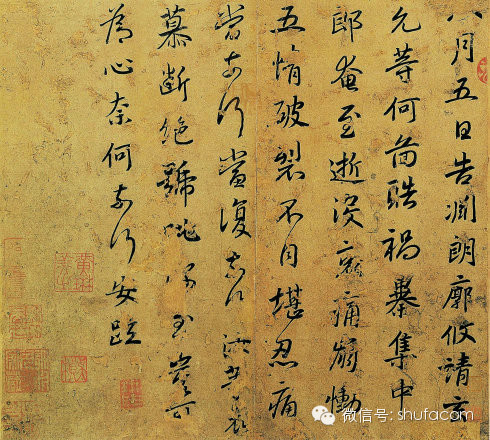 八月五日告淵朗廓攸靖玄
允等何圖酷禍暴集中
郎奄至逝沒哀痛崩慟
五情破裂不自堪忍痛
當奈何當復奈何汝等哀
慕斷絕號咷深至豈可
為心奈何奈何安疏
微信号: shufacom